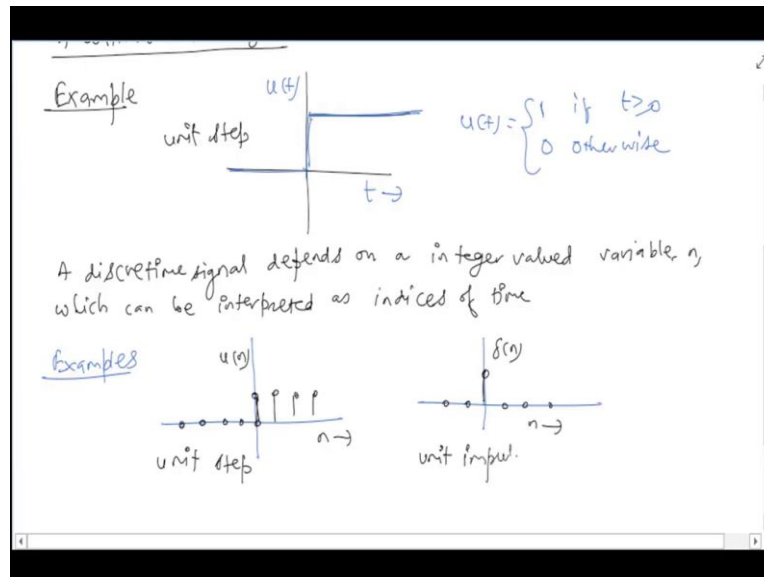 Example
u(t)
unit step
t →
u(t) = { 1 if t≥0
0 otherwise
A discretime signal depends on a integer valued variable n,
which can be interpreted as indices of time
Examples
u(n)
n →
unit step
δ(n)
n →
unit impul.